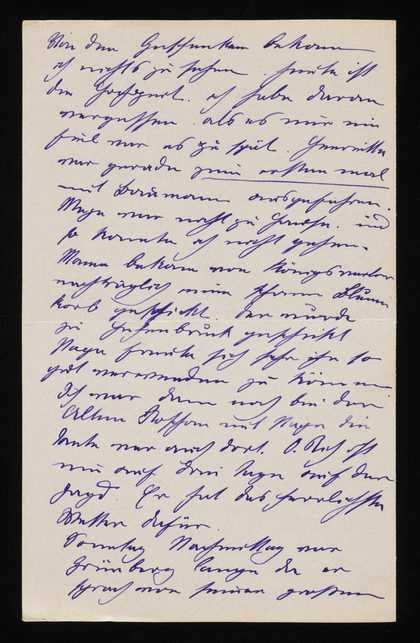 Von den Geschenken bekam
ich nichts zu sehen. Heute ist
die Hochzeit. ich habe daran
vergessen. als es mir ein
fiel war es zu spät. Henriette
war gerade zum ersten mal
mit Baumann ausgefahren.
Papa war nicht zu Hause. und
so konnte ich nicht gehen.
Mama bekam von Königswarter
nachträglich einen schönen Blumen
korb geschickt. der wurde
zu geschickt
Papa freute sich sehr ihn so
gut verwenden zu können
Ich war dann noch bei der
Alten mit Papa die
Tante war auch dort. O. Rich ist
nun auf drei Tage auf der
Jagd. Er hat das herrlichste
Wetter dafür.
Sonntag Nachmittag war
Grünberg lange da er
sprach von seinen grossen